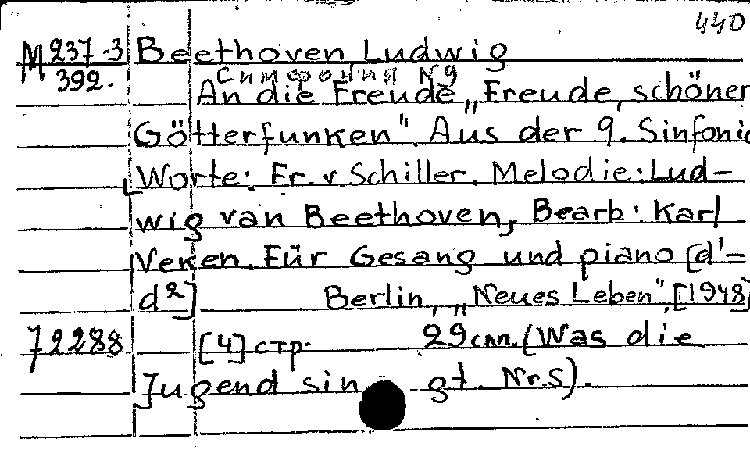 440
M 237-3 Beethoven Ludwig
392. Симфония N9
An die Freude „Freude, schöner
Götterfunken" Aus der 9. Sinfonie
Worte: Fr. v Schiller. Melodie: Lud-
wig van Beethoven, Bearb: Karl
Veken. Für Gesang und piano [d'-
d²] Berlin, „Neues Leben", [1948]
72288 [4] стр. 29 см. (Was die
Jugend sin gt. Nr. 5).